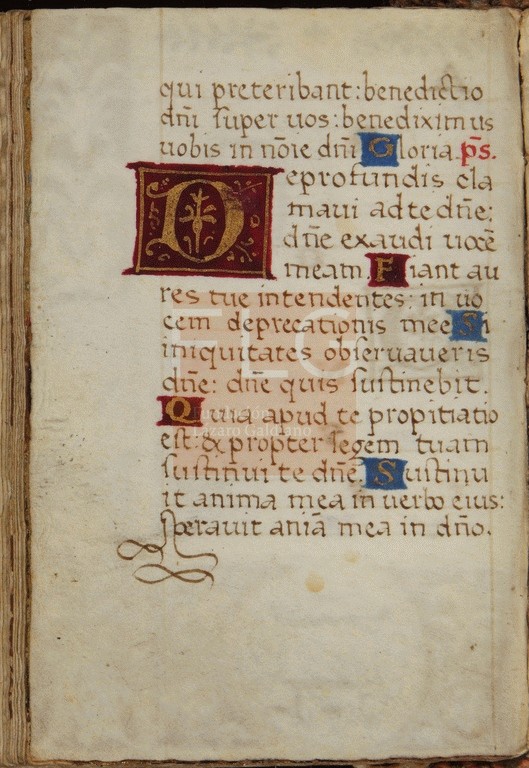 qui preteribant: benedictio
dn̄i super uos: benediximus
uobis in nōie dn̄i Gloria. p̄s.
Deprofundis cla
maui ad te dn̄e:
dn̄e exaudi uocē
meam. Fiant au
res tue intendentes: in uo
cem deprecationis mee Si
iniquitates obseruaueris
dn̄e: dn̄e quis sustinebit.
Quia apud te propitiatio
est: & propter legem tuam
sustinui te dn̄e. Sustinu
it anima mea in uerbo eius:
sperauit aniā mea in dn̄o.
FLG
Fundación
Lázaro Galdiano